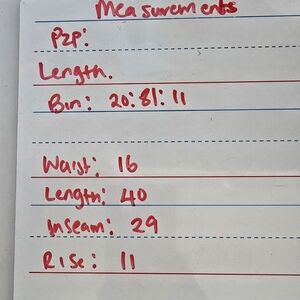 Measurements
P2P:
Length.
Bin: 20:81:11
Waist: 16
Length: 40
Inseam: 29
Rise: 11